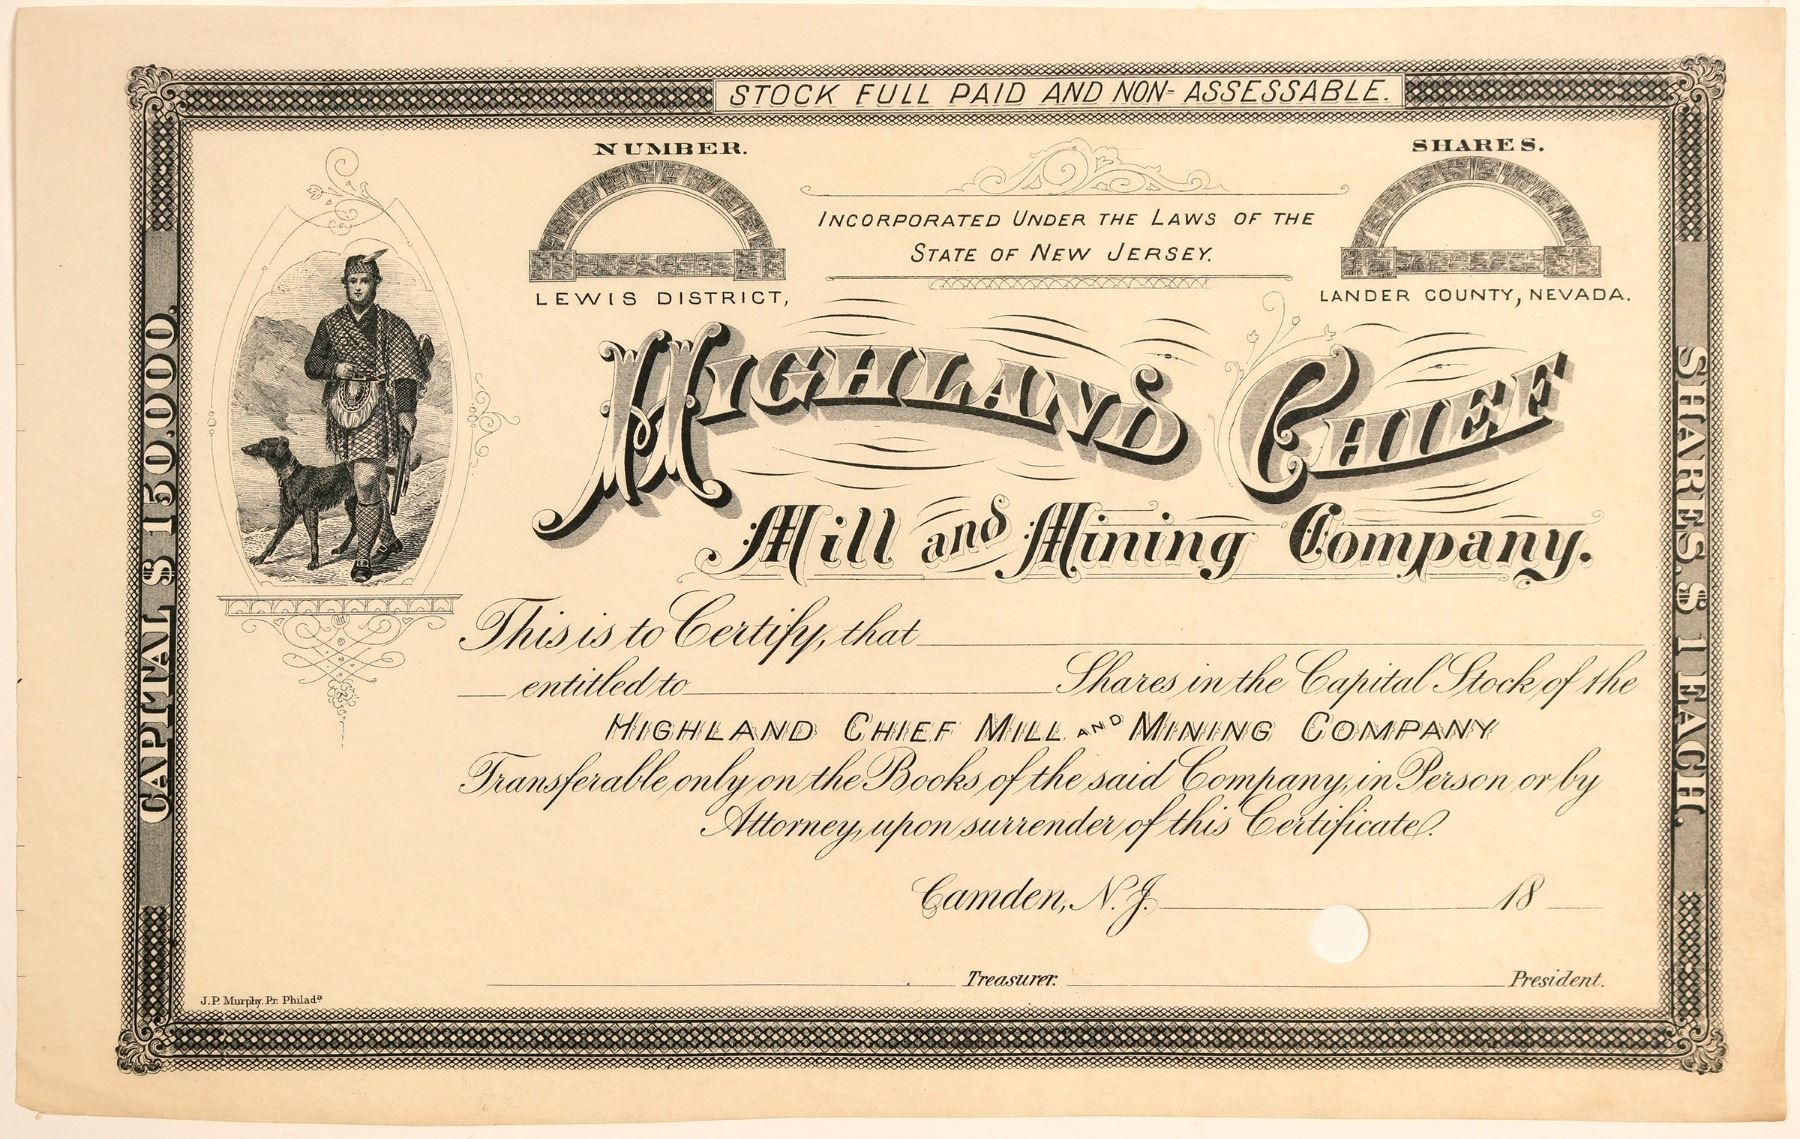 STOCK FULL PAID AND NON-ASSESSABLE.
NUMBER.
SHARES.
INCORPORATED UNDER THE LAWS OF THE
STATE OF NEW JERSEY.
LEWIS DISTRICT,
LANDER COUNTY, NEVADA.
HIGHLAND CHIEF
Mill and Mining Company.
CAPITAL $150,000.
SHARES, $1 EACH.
This is to Certify, that
entitled to Shares in the Capital Stock of the
HIGHLAND CHIEF MILL AND MINING COMPANY
Transferable only on the Books of the said Company, in Person or by
Attorney, upon surrender of this Certificate.
Camden, N.J. 18
Treasurer. President.
J.P. Murphy. Pr. Philada